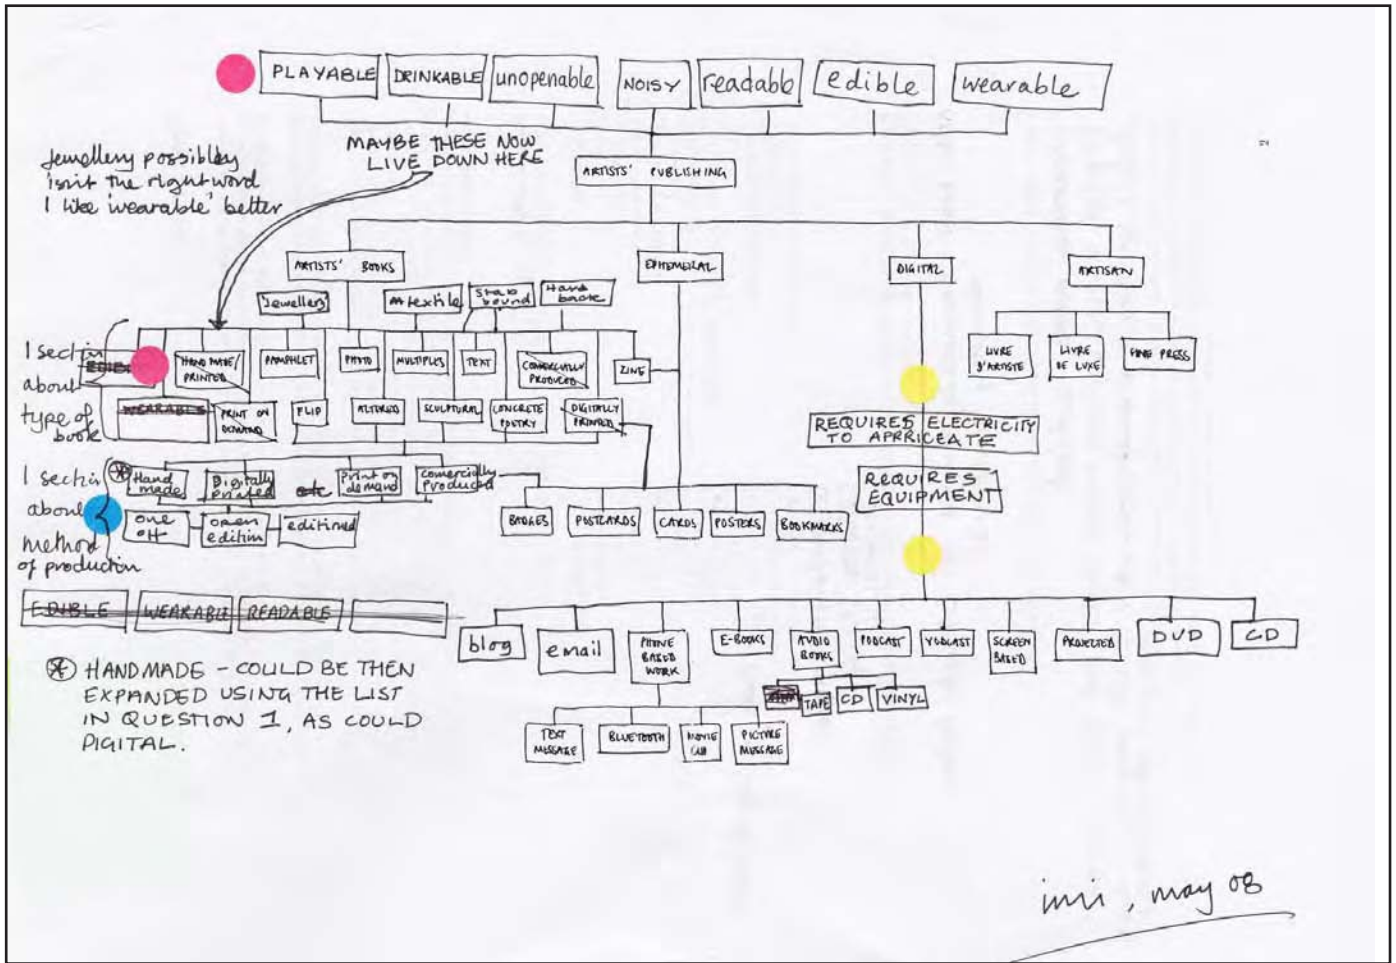 PLAYABLE DRINKABLE unopenable NOISY readable edible wearable
MAYBE THESE NOW
LIVE DOWN HERE
Jewellery possibley
isn't the right word
I like 'wearable' better
ARTISTS' PUBLISHING
ARTISTS' BOOKS EPHEMERAL DIGITAL ARTISAN
Jewellery textile Stab bound Hard back
LIVRE D'ARTISTE
LIVRE DE LUXE
FINE PRESS
1 section
about
type of
book
HAND MADE/ PRINTED
PAMPHLET
PHOTO
MULTIPLES
TEXT
COMERCIALLY PRODUCED
ZINE
WEARABLE
PRINT ON DEMAND
FLIP
ALTERED
SCULPTURAL
CONCRETE POETRY
DIGITALLY PRINTED
REQUIRES ELECTRICITY
TO APPRICEATE
REQUIRES
EQUIPMENT
1 section
about
method
of production
Hand made
Digitally printed
etc
Print on demand
Comercially Produced
one off
open edition
editioned
BADGES POSTCARDS CARDS POSTERS BOOKMARKS
EDIBLE WEARABLE READABLE
blog
email
PHONE BASED WORK
E-BOOKS
AUDIO BOOKS
PODCAST
VODCAST
SCREEN BASED
PROJECTED
DVD
CD
TAPE CD VINYL
TEXT MESSAGE
BLUETOOTH
MOVIE CLIP
PICTURE MESSAGE
* HANDMADE - COULD BE THEN
EXPANDED USING THE LIST
IN QUESTION 1, AS COULD
DIGITAL.
imi, may 08